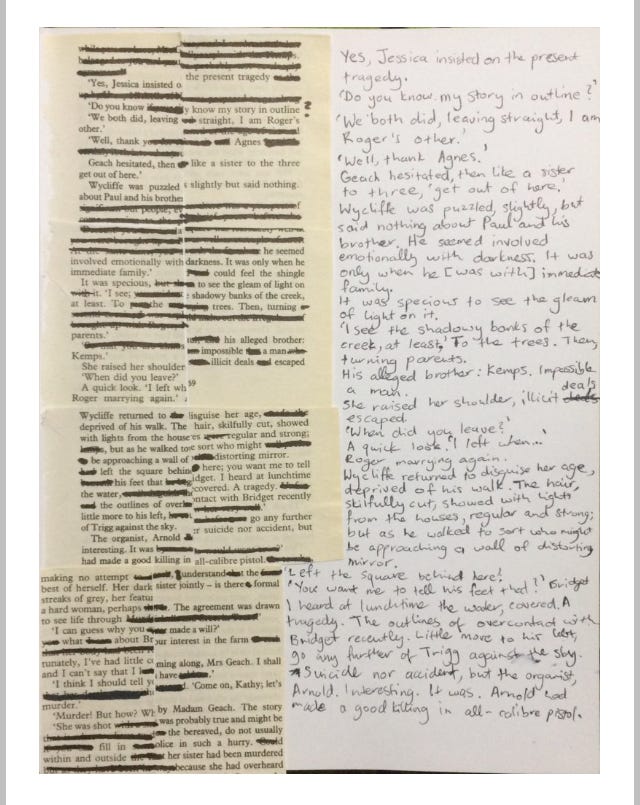 the present tragedy
'Yes, Jessica insisted o
'Do you know y know my story in outline ?
'We both did, leaving straight, I am Roger's
other.'
'Well, thank Agnes
Geach hesitated, then like a sister to the three
get out of here.'
Wycliffe was puzzled slightly but said nothing.
about Paul and his brothe
he seemed
involved emotionally with darkness. It was only when he
immediate family.' could feel the shingle
It was specious, to see the gleam of light on
'I see; shadowy banks of the creek,
at least. To the trees. Then, turning
parents.'
his alleged brother:
Kemps.' impossible a man
She raised her shoulder illicit deals escaped
'When did you leave?'
A quick look. 'I left wh 69
Roger marrying again.'
Wycliffe returned to lisguise her age,
deprived of his walk. The hair, skilfully cut, showed
with lights from the house regular and strong;
but as he walked to sort who might
be approaching a wall of distorting mirror.
left the square behin here; you want me to tell
his feet that idget. I heard at lunchtime
the water, covered. A tragedy.
the outlines of over ntact with Bridget recently
little more to his left,
of Trigg against the sky. go any further
The organist, Arnold ir suicide nor accident, but
interesting. It was
had made a good killing in all-calibre pistol.
making no attempt understand the
best of herself. Her dark sister jointly – is there formal
streaks of grey, her featu
a hard woman, perhaps The agreement was drawn
to see life through
'I can guess why you made a will?'
what about Br ur interest in the farm
tunately, I've had little co ming along, Mrs. Geach. I shall
and I can't say that I l have
'I think I should tell yo 'Come on, Kathy; let's
murder.'
'Murder! But how? Wh by Madam Geach. The story
'She was shot was probably true and might be
the bereaved, do not usually
fill in olice in such a hurry.
within and outside her sister had been murdered
because she had overheard
Yes, Jessica insisted on the present
tragedy.
'Do you know my story in outline?'
'We both did, leaving straight, I am
Roger's other.'
'Well, thank Agnes.'
Geach hesitated, then like a sister
to three, 'get out of here,'
Wycliffe was puzzled, slightly, but
said nothing about Paul and his
brother. He seemed involved
emotionally with darkness. It was
only when he [was with] immediate
family.
It was specious to see the gleam
of light on it.
'I see the shadowy banks of the
creek, at least. To the trees. Then,
turning parents.
His alleged brother: Kemps. Impossible
a man.
She raised her shoulder, illicit deals
escaped.
'When did you leave?'
A quick look. 'I left when...'
Roger marrying again.
Wycliffe returned to disguise her age,
deprived of his walk. The hair,
skilfully cut, showed with lights
from the houses, regular and strong;
but as he walked to sort who might
be approaching a wall of distorting
mirror.
'Left the square behind here!
'You want me to tell his feet that?' Bridget
I heard at lunchtime the water, covered. A
tragedy. The outlines of overcontact with
Bridget recently. Little more to his left,
go any further of Trigg against the sky.
Suicide nor accident, but the organist
Arnold. Interesting. It was. Arnold had
made a good killing in all-calibre pistol.